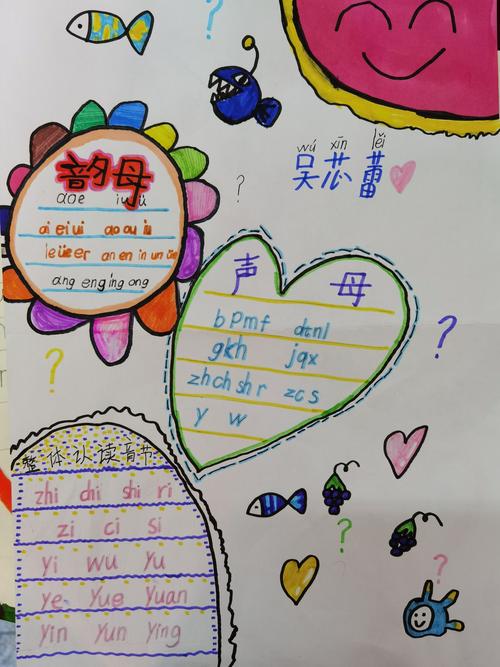 wú xīn lěi
吴芯蕾
韵母
aoe iuü
ai ei ui ao ou iu
ie üe er an en in un ün
ang eng ing ong
声母
bpmf dtnl
gkh jqx
zh ch sh r z c s
y w
整体认读音节
zhi chi shi ri
zi ci si
yi wu yu
ye yue yuan
yin yun ying